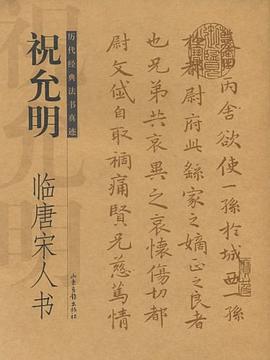 历代经典法书真迹
祝允明
临唐宋人书
山东画报出版社
丙舍欲使一孫於城西一孫
於都尉府此繇家之嫡正之良者
也兄弟共哀異之哀懷傷切都
尉文岱自取禍痛賢兄慈篤情
祝允明